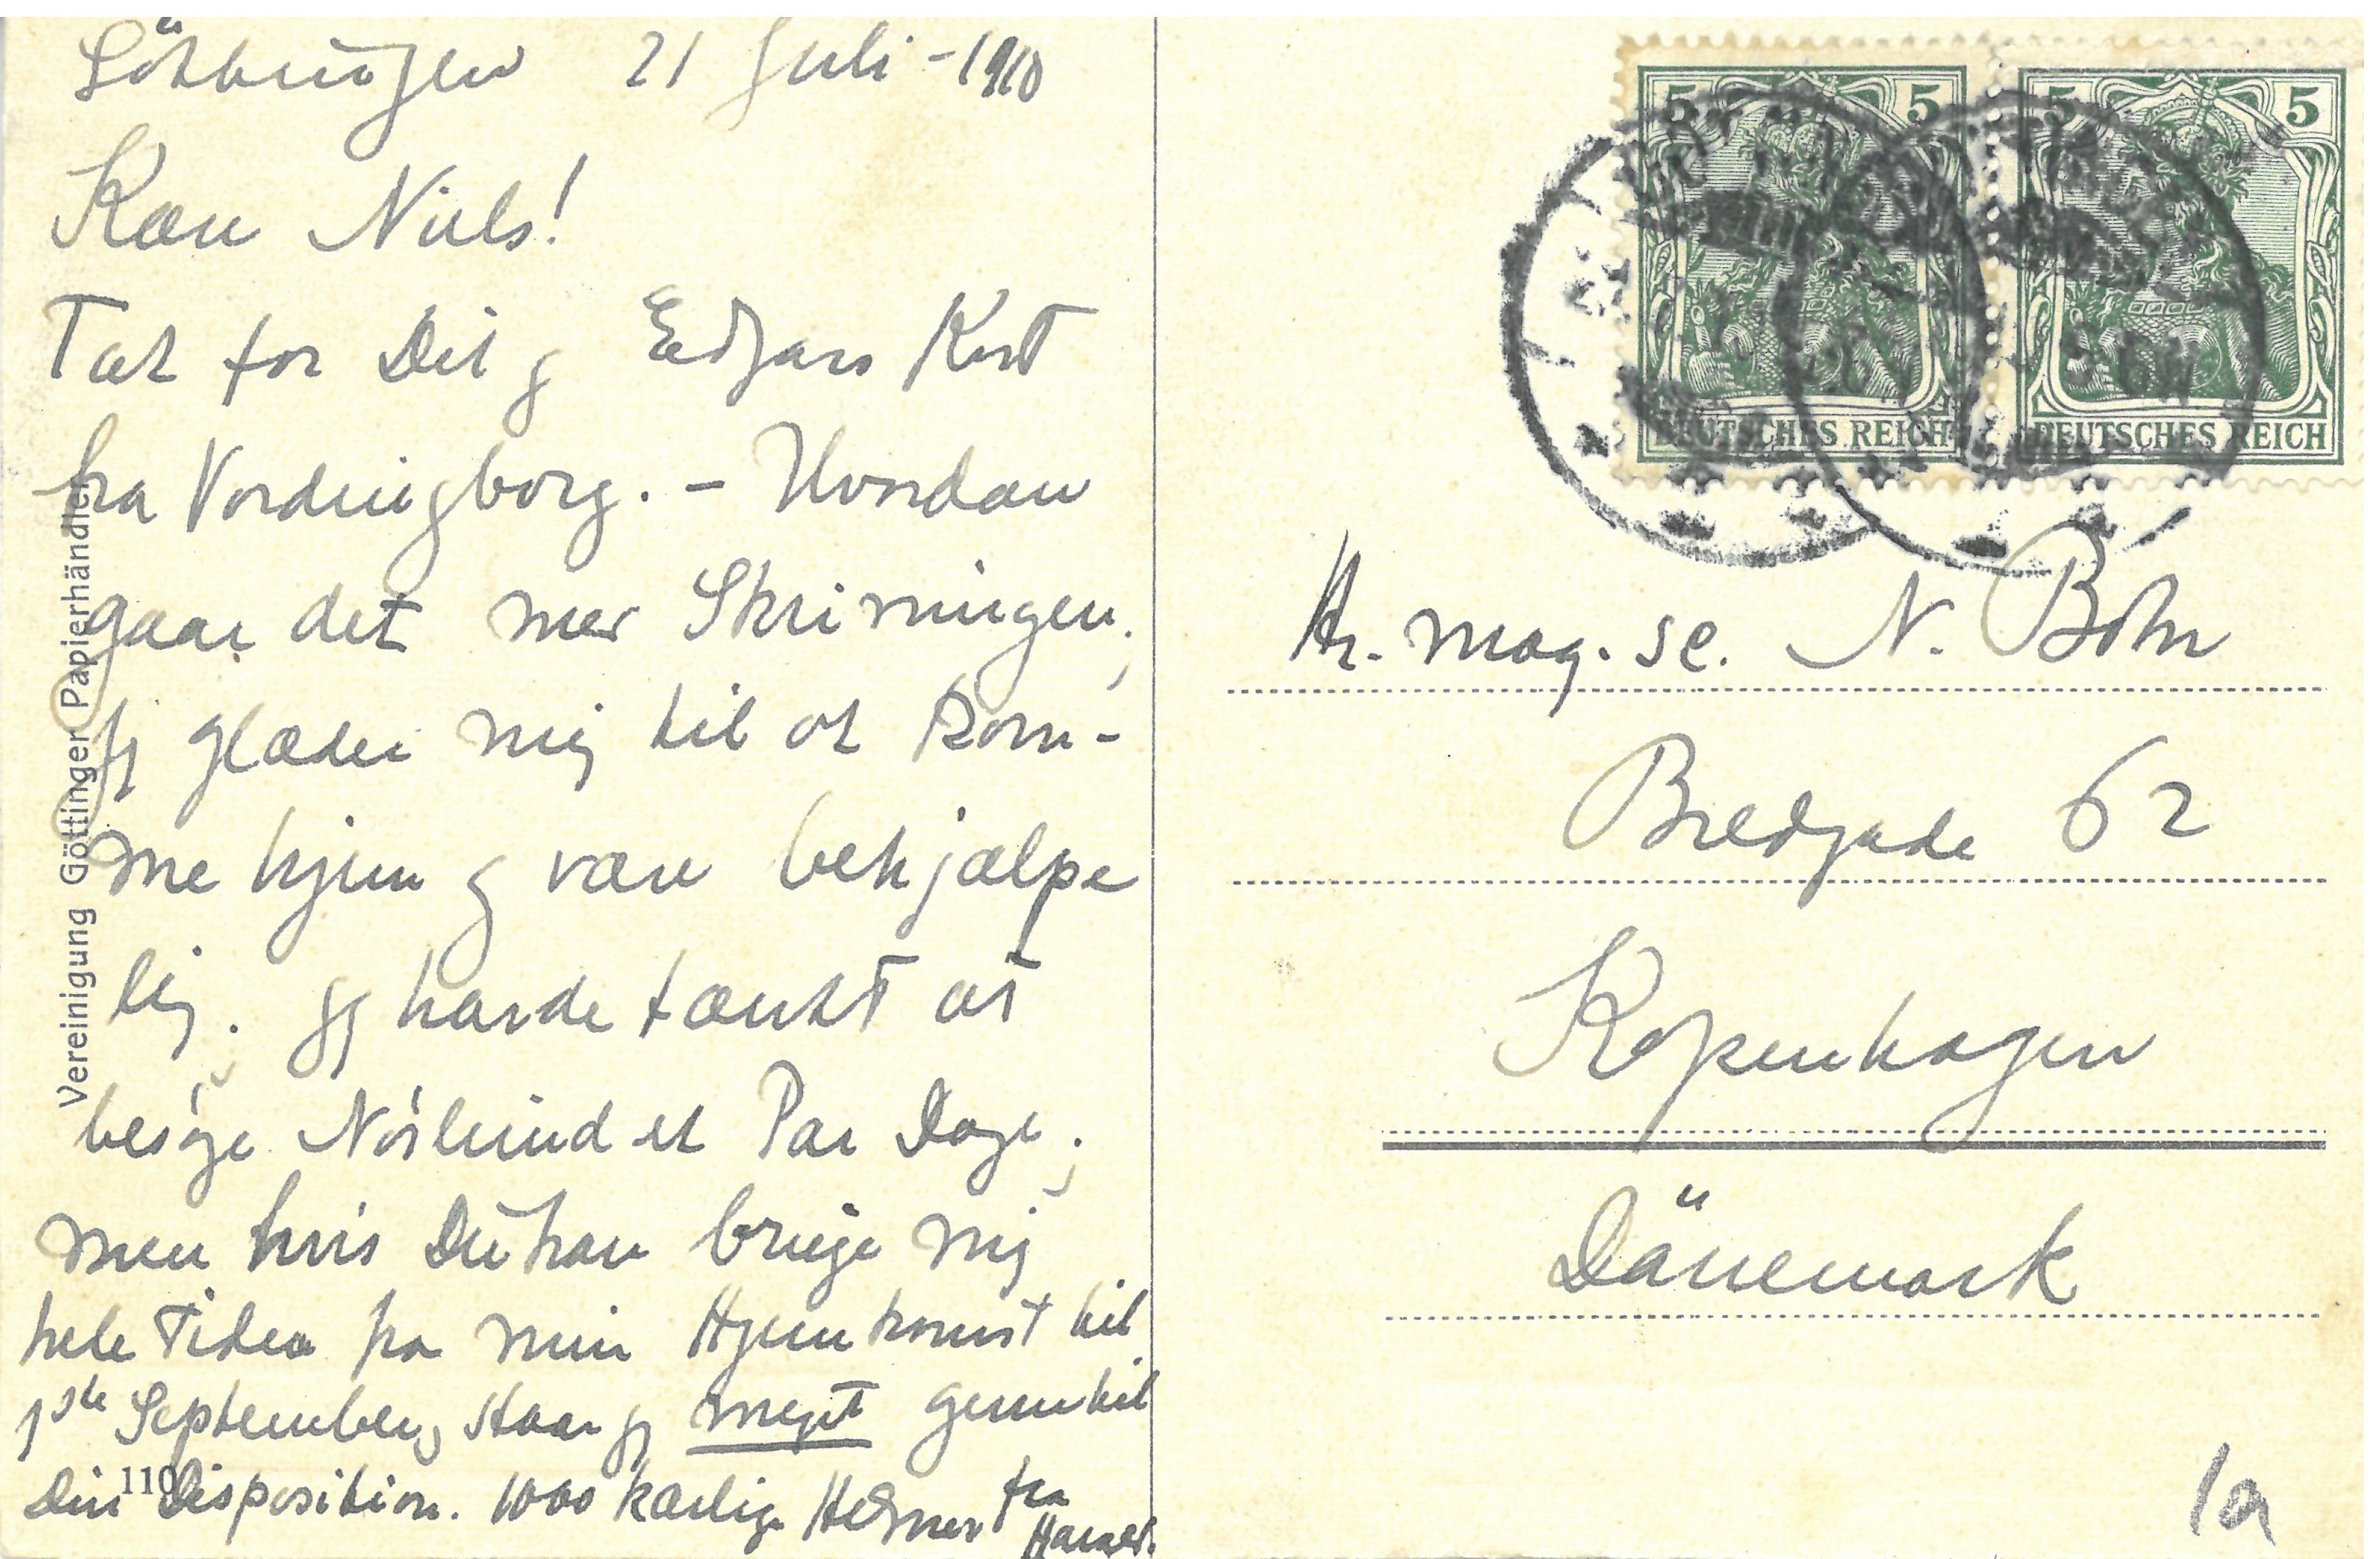 Göttingen 21 Juli - 1910
Kære Niels!
Tak for Dit og Edgars Kort
fra Vordingborg. - Hvordan
gaar det med Skrivningen;
jeg glæder mig til at kom-
me hjem og være behjælpe
lig. Jeg havde tænkt at
besøge Nørlund et Par Dage;
men hvis Du kan bruge mig
hele Tiden fra min Hjemkomst til
1ste September, staar jeg meget gerne til
Din Disposition. 1000 kærlige Hilsner fra
Harald.
Vereinigung Göttinger Papierhändler
110
5 5
5 5
DEUTSCHES REICH
DEUTSCHES REICH
Hr. mag. sc. N. Bohr
Bredgade 62
Kopenhagen
Dänemark
1a